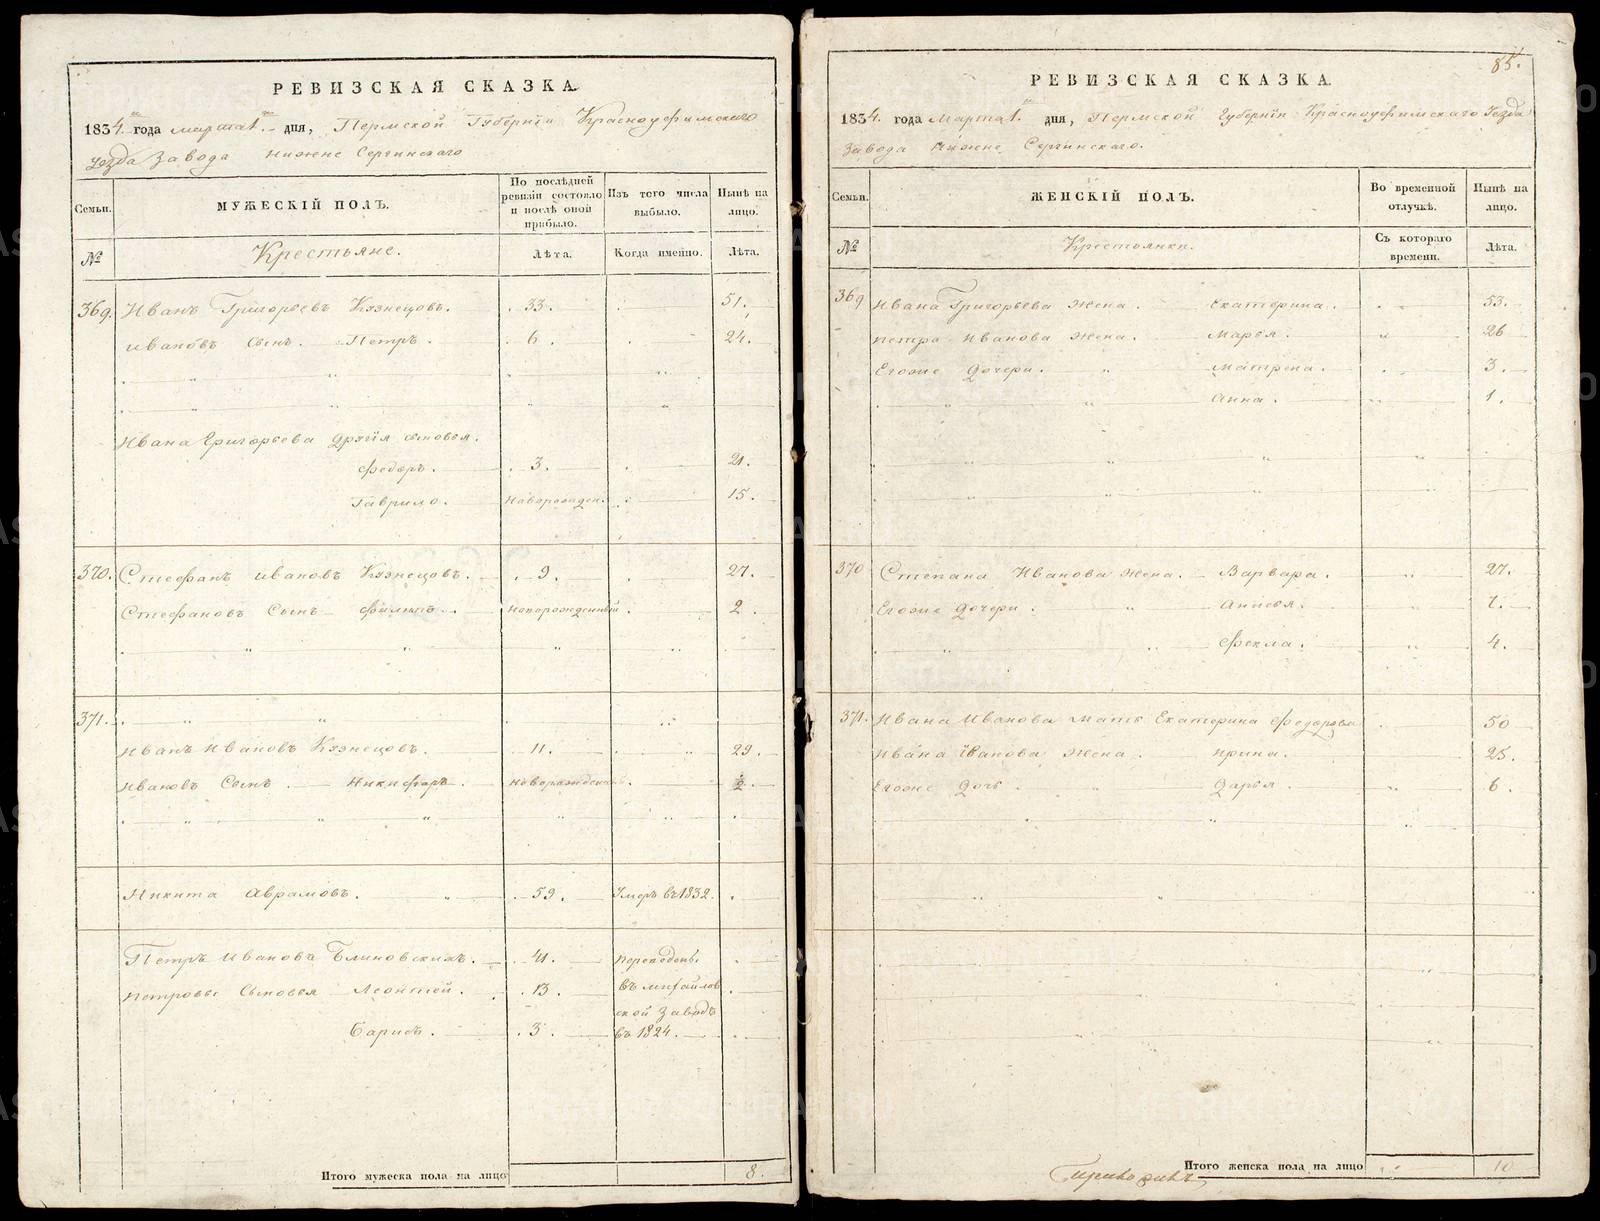 РЕВИЗСКАЯ СКАЗКА.
1834.го года марта 1.го дня, Пермской Губернїи Красноуфимскаго
уезда завода Нижне Сергинскаго
Семьи.
МУЖЕСКІЙ ПОЛЪ.
По послѣдней ревизіи состояло и послѣ оной прибыло.
Изъ того числа выбыло.
Нынѣ на лицо.
№
Крестьяне.
Лѣта.
Когда имянно.
Лѣта.
369. Иванъ Григорьевъ Кузнецовъ. 33. 51.
Ивановъ Сынъ. Петръ. 6. 24.
Ивана Григорьева другїя сыновья.
Федоръ. 3. 21.
Гаврило. Новорожден. 15.
370. Стефанъ Ивановъ Кузнецовъ. 9. 27.
Стефановъ Сынъ Филипъ. Новорожденный 2.
371.
Иванъ Ивановъ Кузнецовъ. 11. 29.
Ивановъ Сынъ. Никифоръ. Новорожденный 2.
Никита Аврамовъ. 59. Умеръ въ 1832.
Петръ Ивановъ Блиновскихъ. 41. переведены
Петровы Сыновья Леонтей. 13. въ михайлов
ской заводъ
Борисъ. 3. въ 1824.
Итого мужеска пола на лицо 8.
85.
РЕВИЗСКАЯ СКАЗКА.
1834. года Марта 1.го дня, Пермской Губернїи Красноуфимскаго Уезда
завода Нижне Сергинскаго.
Семьи.
ЖЕНСКІЙ ПОЛЪ.
Во временной отлучкѣ.
Нынѣ на лицо.
№
Крестьянки.
Съ котораго времени.
Лѣта.
369 Ивана Григорьева жена. Екатерина. 53.
Петра Иванова жена. Марья. 26
Егоже дочери. Матрена. 3.
Анна. 1.
370 Степана Иванова жена. Варвара. 27.
Егоже дочери. 7.
Фекла. 4.
371. Ивана Иванова мать Екатерина Федорова 50
Ивана Иванова жена. Ирина. 25.
Егоже дочь. Дарья. 6.
Итого женска пола на лицо 10